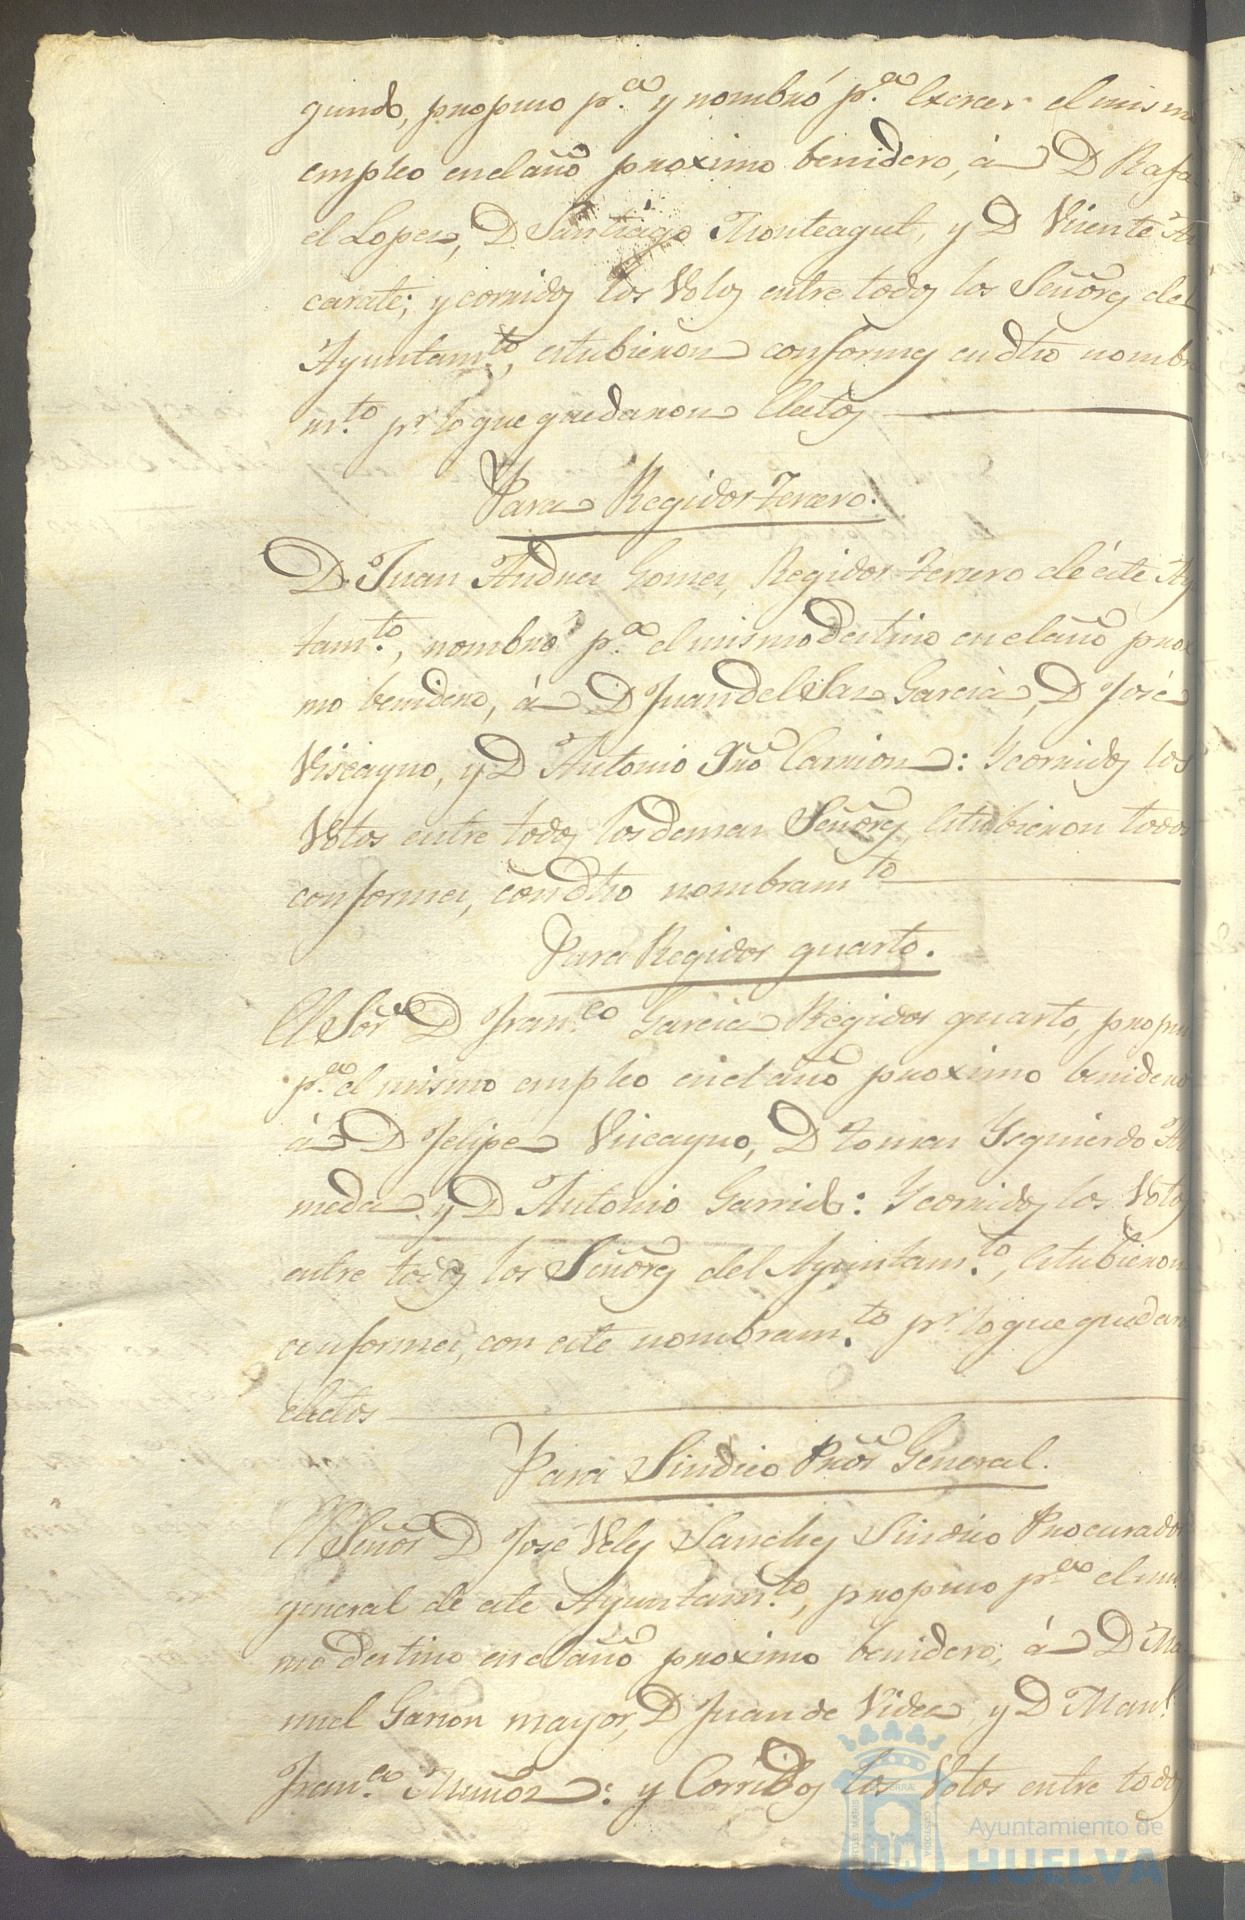 gundo, propuso p.ª y nombró p.ª Exercer el mismo
empleo en el año proximo benidero, á D Rafa
el Lopez, D Santiago Monteagut, y D Vicente Az
carate; y corridos los Votos entre todos los Señores del
Ayuntam.to, estubieron conformes en dho nombra
m.to pr lo que quedaron Electos
Para Regidor Tercero.
D. Juan Andres Gomez, Regidor Tercero de éste Ayun
tam.to, nombró p.ª el mismo destino en el año proxi
mo benidero, á D Juan del Saz Garcia, D José
Viscayno, y D Antonio Carrion: Y corridos los
Votos entre todos los demas Señores, estubieron todos
conformes, con dho nombram.to
Para Regidor quarto.
El Sor D Fran.co Garcia Regidor quarto, propuso
p.ª el mismo empleo en el año proximo benidero
á D Felipe Viscayno, D Tomas Ysquierdo
y D Antonio Garrido: Y corridos los Votos
entre todos los Señores del Ayuntam.to, Estubieron
conformes, con este nombram.to pr lo que quedaron
electos
Para Sindico Pror General.
El Señor D José Velez Sanchez Sindico Procurador
general de este Ayuntam.to, propuso p.ª el mis
mo destino en el año proximo benidero, á D Ma
nuel Garzon mayor, D Juan de Vides, y D Man.l
Fran.co Muñoz: y Corridos los Votos entre todos
Ayuntamiento de
HUELVA